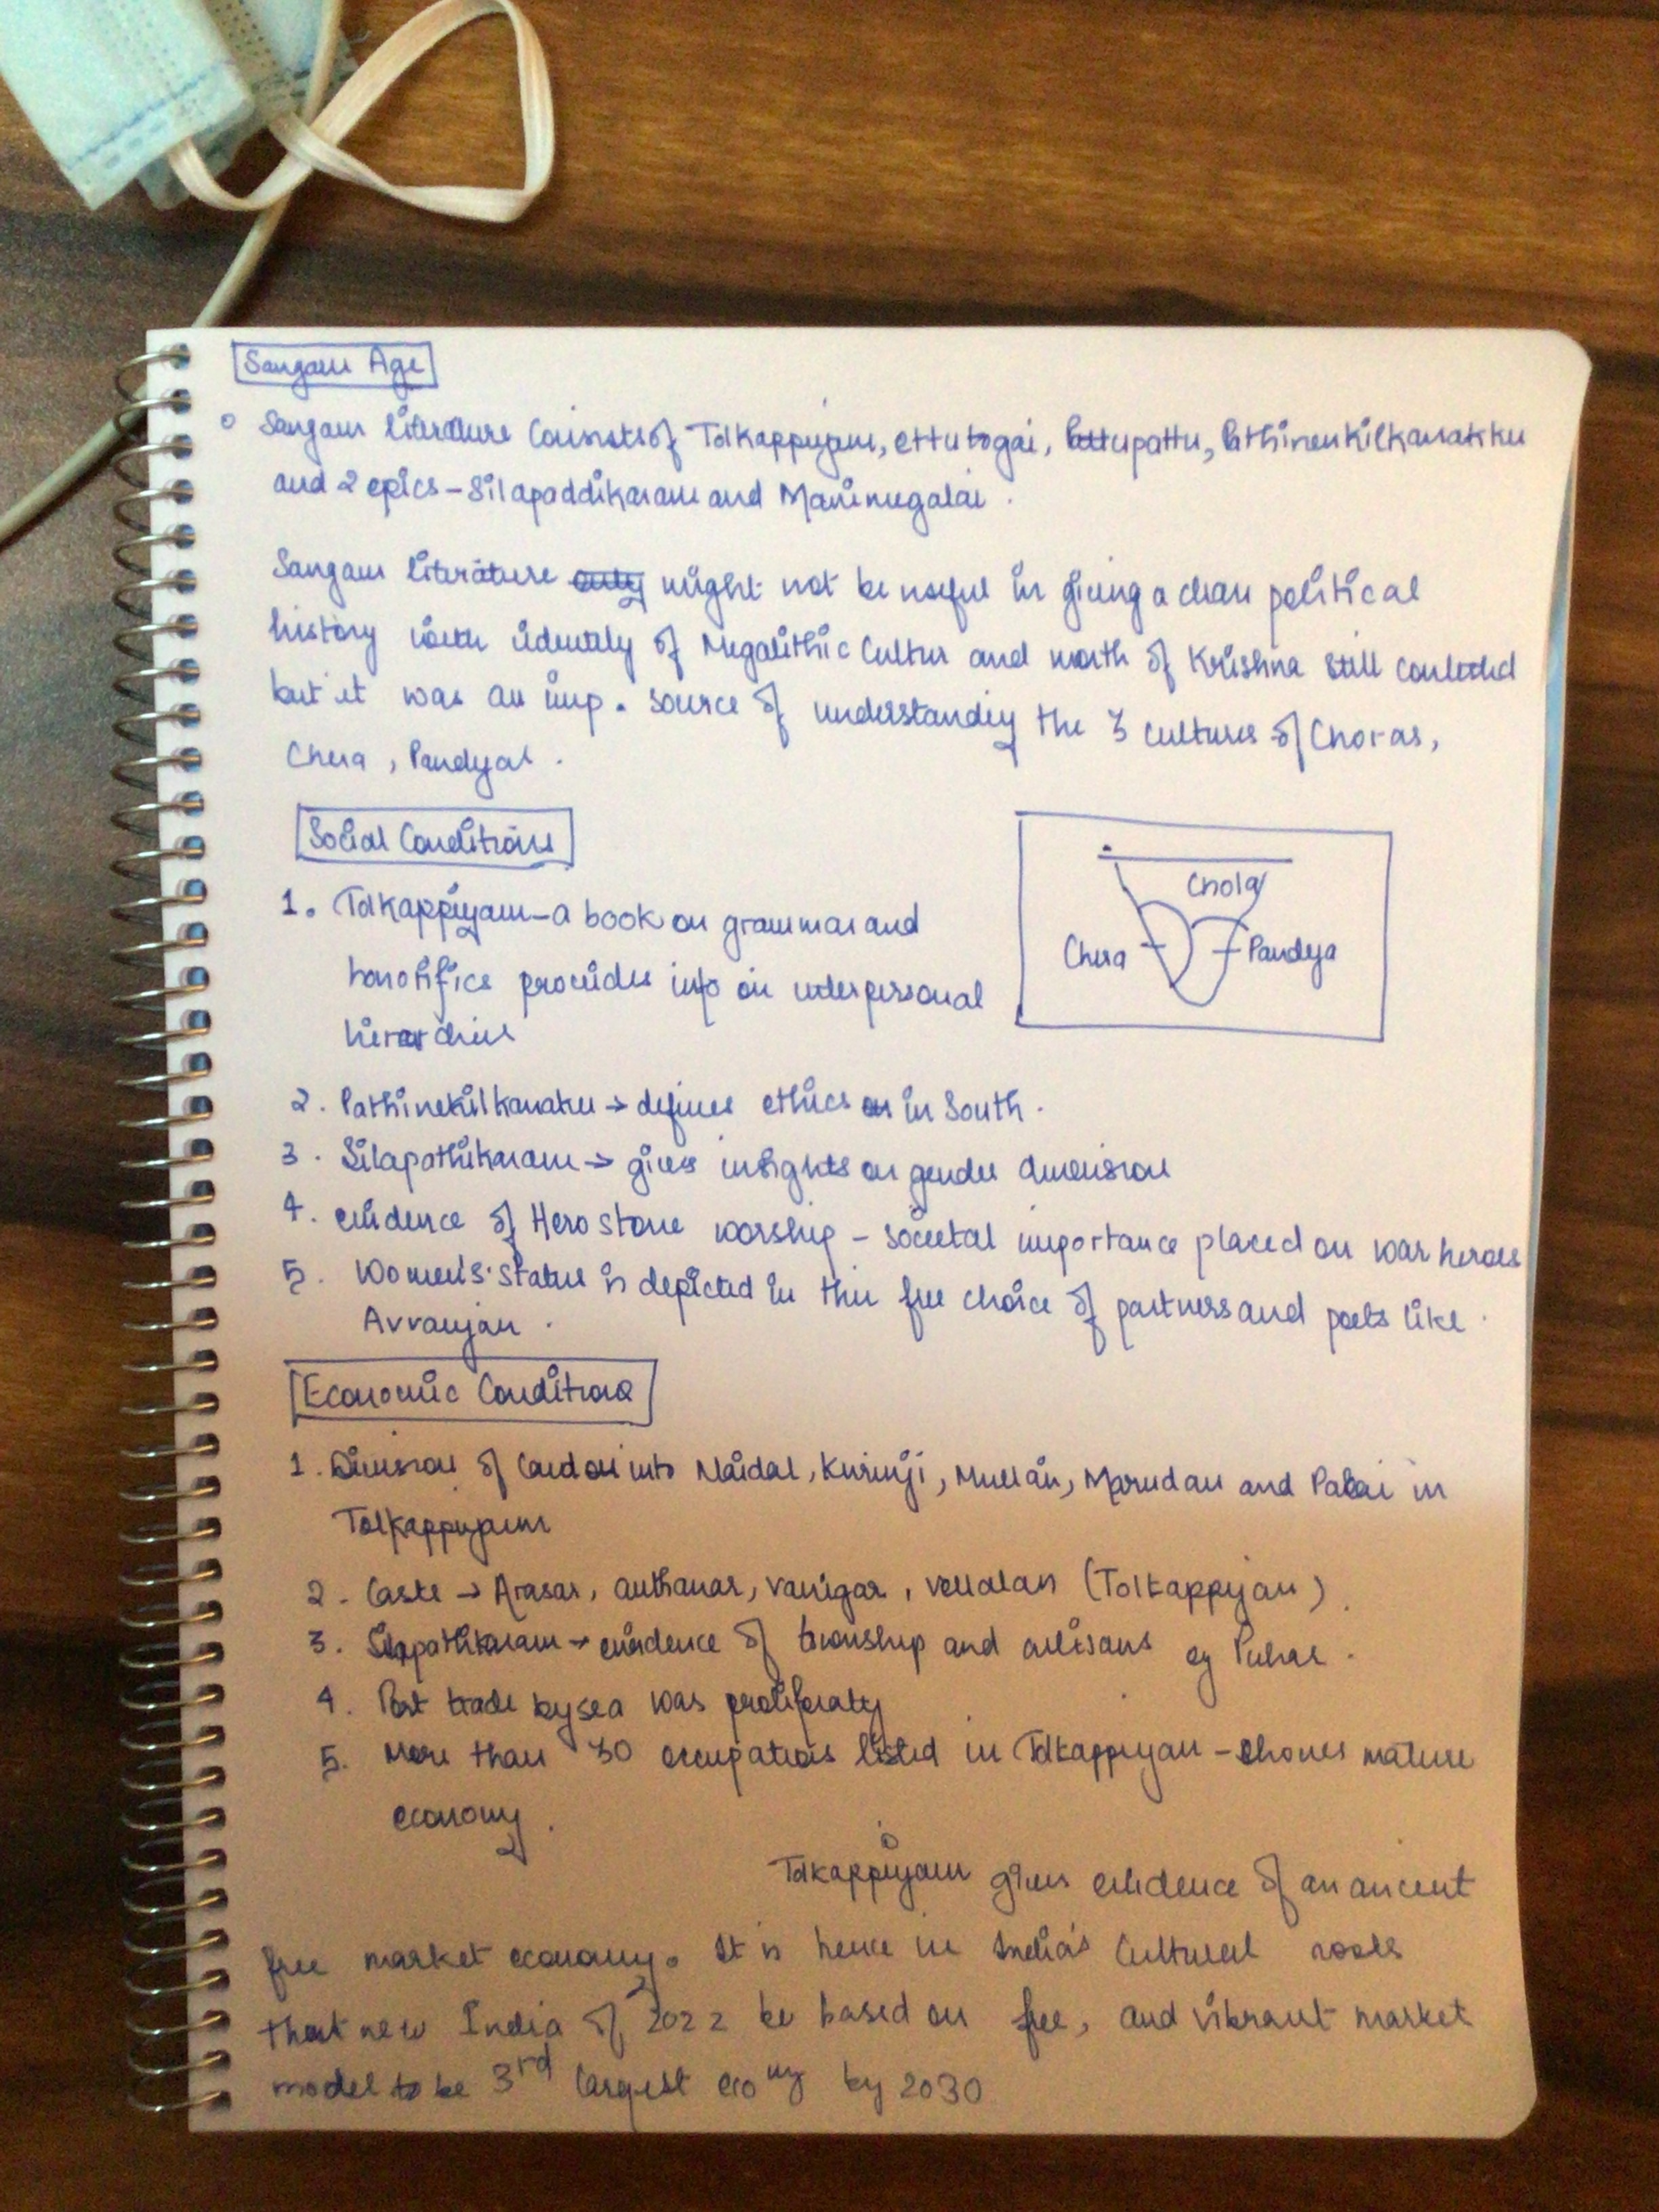 Sangam Age
Sangam literature Consists of Tolkappiyam, ettutogai, Pattupattu, Pathinenkilkanakku
and 2 epics - Silapaddikaram and Manimegalai.
Sangam literature only might not be useful in giving a clear political
history with identity of Megalithic Cultur and north of Krishna still
but it was an imp. source of understanding the 3 cultures of Choras,
Chera, Pandyas.
Social Conditions
1. Tolkappiyam - a book on grammar and
honorifics provides info on interpersonal
Chola
Chera
Pandya
2. Pathinekilkanaku → defines ethics in South.
3. Silapathikaram → gives insights on gender dimension
4. evidence of Hero stone worship - societal importance placed on war heroes
5. Women's status is depicted in their free choice of partners and poets like
Avvaiyar.
Economic Conditions
1. Division of land into Naidal, Kurinji, Mullai, Marudam and Palai in
Tolkappiyam
2. Caste → Arasar, anthanar, vanigar, vellalar (Tolkappiyam).
3. Silapathikaram → evidence of township and artisans eg Puhar.
4. Port trade by sea was
5. More than 30 occupations listed in Tolkappiyam - shows mature
economy.
Tolkappiyam gives evidence of an ancient
free market economy. It is hence in India's Cultural roots
that new India of 2022 be based on free, and vibrant market
model to be 3rd largest ecomy by 2030